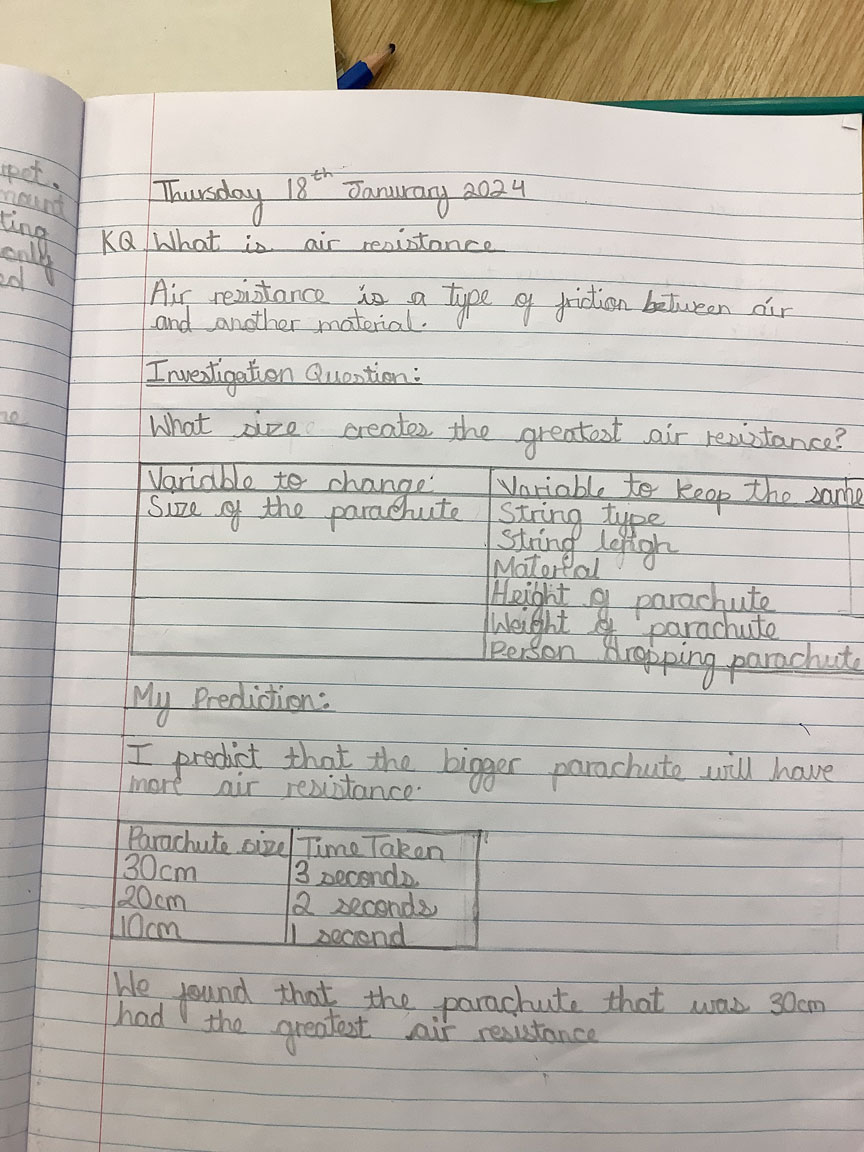 upet.
mount
ting
only
ed
re
Thursday 18th Janurary 2024
KQ What is air resistance
Air resistance is a type of friction between air
and another material.
Investigation Question:
What size creates the greatest air resistance?
Variable to change Variable to keep the same
Size of the parachute String type
String lengh
Material
Height of parachute
Weight of parachute
Person dropping parachute
My Prediction:
I predict that the bigger parachute will have
more air resistance.
Parachute size Time Taken
30cm 3 seconds
20cm 2 seconds
10cm 1 second
We found that the parachute that was 30cm
had the greatest air resistance